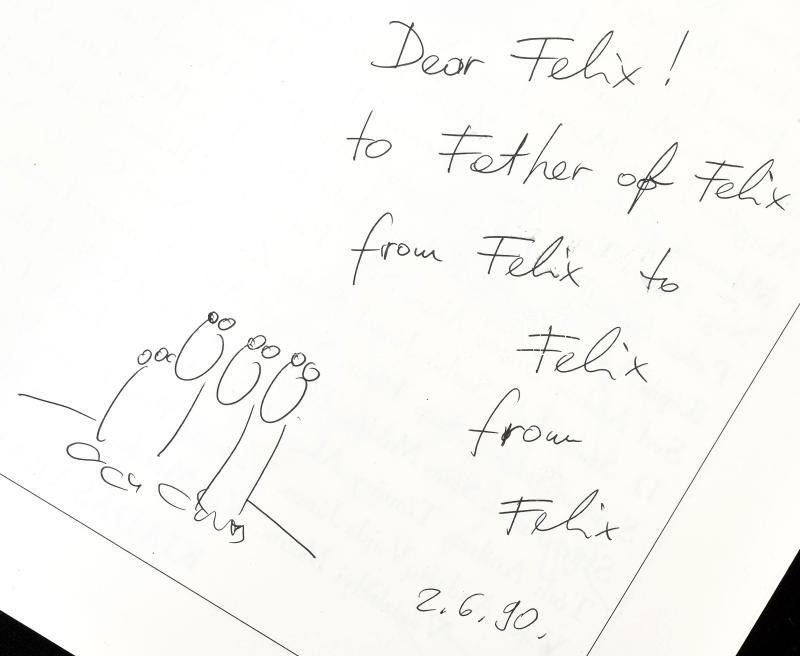 Dear Felix!
to Father of Felix
from Felix to
Felix
from
Felix
2.6.90.